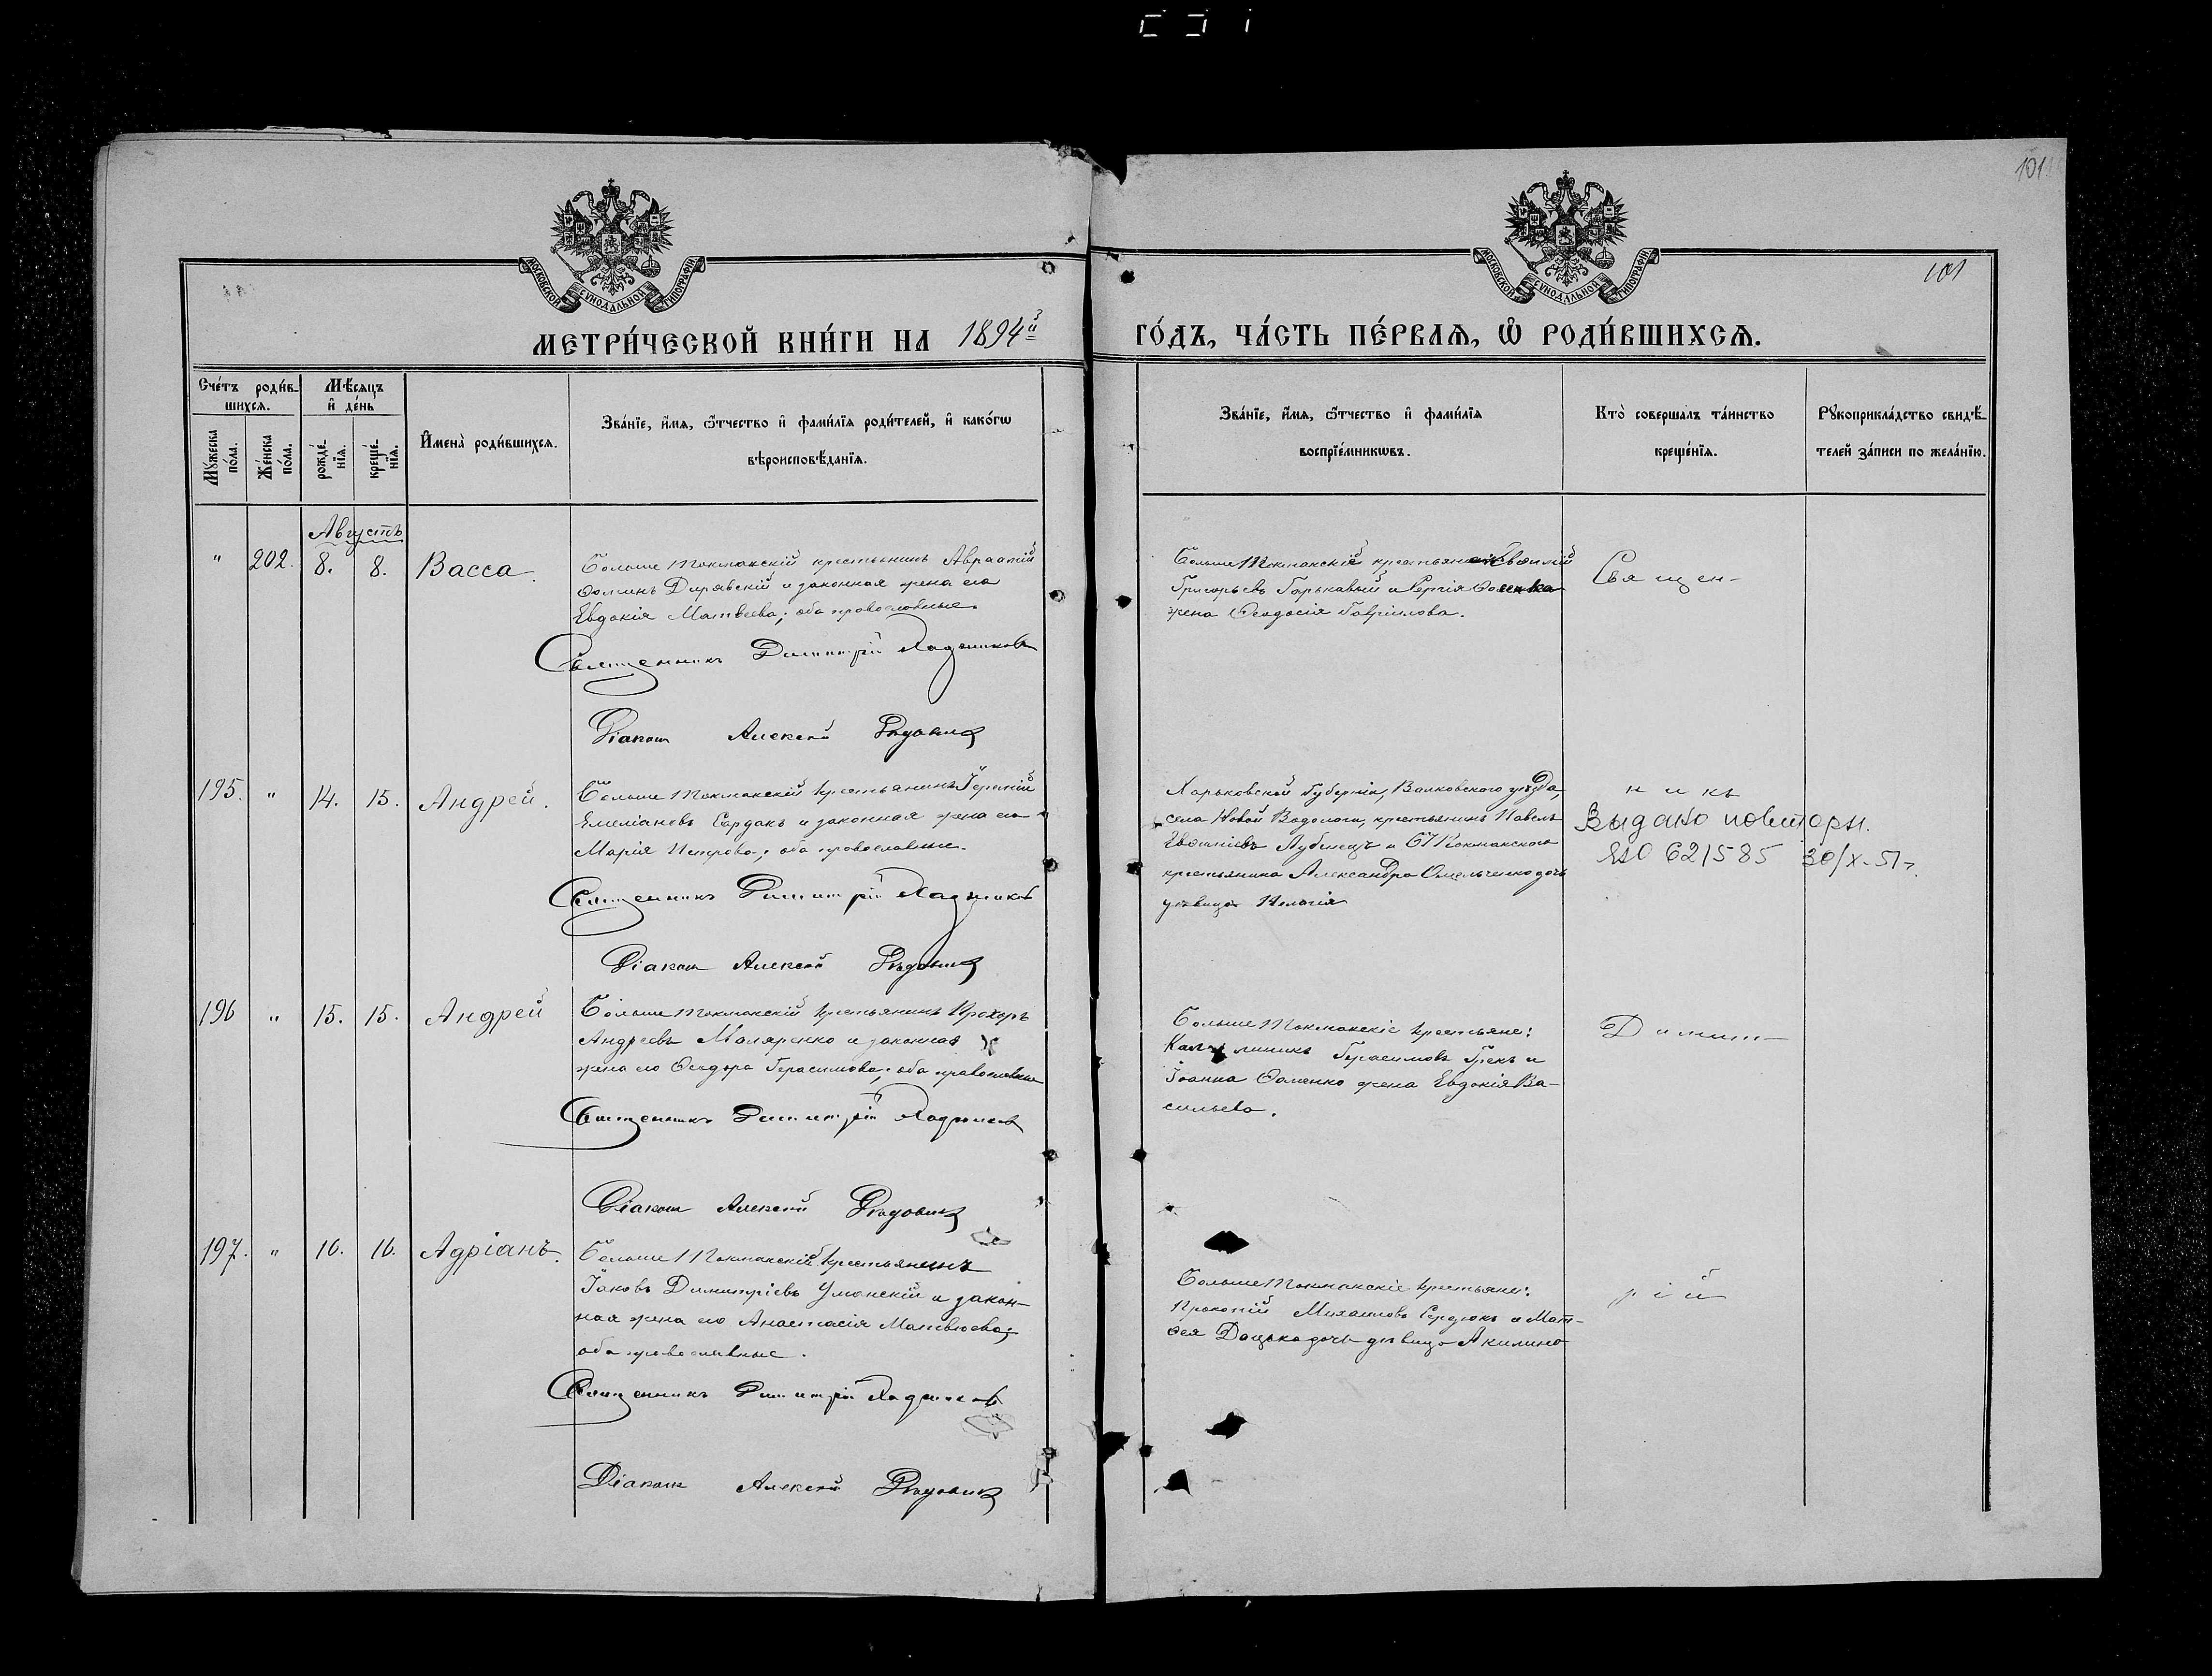 101
101
МОСКОВСКОЙ СѴНОДАЛЬНОЙ ТИПОГРАФІИ
МОСКОВСКОЙ СѴНОДАЛЬНОЙ ТИПОГРАФІИ
МЕТРИ́ЧЕСКОЙ КНИ́ГИ НА 1894й ГО́ДЪ, ЧА́СТЬ ПЕ́РВАѦ, Ѡ РОДИ́ВШИХСѦ.
Сче́тъ роди́в-
шихсѧ.
Мѣ́сѧцъ
и де́нь
Мꙋ́жеска по́ла.
Же́нска по́ла.
рожде́нїѧ.
креще́нїѧ.
Имена̀ роди́вшихсѧ.
Зва́нїе, и́мѧ, ѻ́тчество и фами́лїѧ роди́телей, и како́гѡ
вѣроисповѣ́данїѧ.
Зва́нїе, и́мѧ, ѻ́тчество и фами́лїѧ
воспрїе́мникѡвъ.
Кто̀ соверша́лъ та́инство
креще́нїѧ.
Рꙋкоприкла́дство свидѣ́-
телей за́писи по жела́нїю.
Августъ
" 202. 8. 8. Васса.
Больше Токмакскій крестьянинъ Авраамій
Ѳоминъ Дирявскій и законная жена его
Евдокія Матвеева; оба православные.
Священникъ Димитрій Ладжиковъ
Діаконъ Алексѣй
Больше Токмакскій
Григорьевъ Горькавый и Сергія
жена Ѳеодосія Гавріилова.
Священ-
195. " 14. 15. Андрей.
Больше Токмакскій крестьянинъ
Емеліановъ Сердакъ и законная жена его
Марія Петрова; оба православные.
Священникъ Димитрій Ладжиковъ
Діаконъ Алексѣй
Харьковской Губерніи, Валковского уѣзда,
села Новой Водолаги, крестьянинъ Павелъ
Лубенецъ и Б. Токмакского
крестьянина Александра Омельченко дочь
дѣвица Пелагія
никъ
Выдано повторн.
ЯО 621585 30/X-51г.
196 " 15. 15. Андрей
Больше Токмакскій крестьянинъ Прохоръ
Андреевъ Маляренко и законная
жена его Ѳеодора Герасимова; оба православные
Священникъ Димитрій Ладжиковъ
Діаконъ Алексѣй
Больше Токмакскіе крестьяне:
Герасимовъ Грекъ и
Іоанна Ѳоменко жена Евдокія Ва-
сильева.
Димит-
197. " 16. 16. Адріанъ.
Больше Токмакскій крестьянинъ
Іаковъ Димитріевъ Уманскій и закон-
ная жена его Анастасія Матвѣева;
оба православные.
Священникъ Димитрій Ладжиковъ
Діаконъ Алексѣй
Больше Токмакскіе крестьяне:
Прокопій Михаиловъ Сердюкъ и Мат-
ѳея Доцька дочь дѣвица Акилина
рій